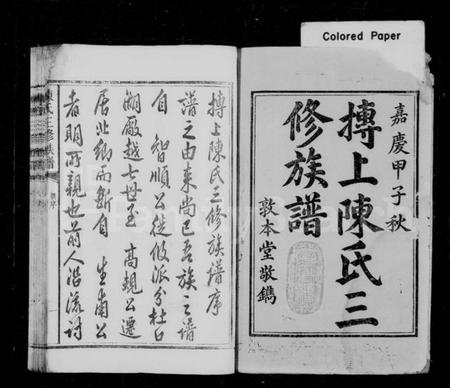 Colored Paper
嘉慶甲子秋
摶上陳氏三
修族譜
敦本堂敬鐫
摶上陳氏三修族譜序
譜之由來尚已吾族之譜
自 智順公徙攸派分杜口
嗣嚴越七世至 高規公遷
居此鄉而斷自 生甫公
者明所親也前人沿流討
陳氏三修族譜